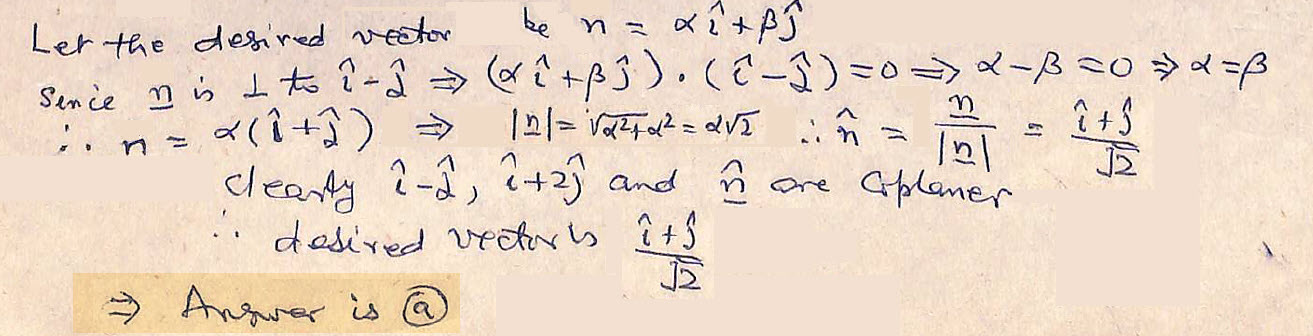 Let the desired vector be n = αî + βĵ
Since n is ⊥ to î - ĵ ⇒ (αî + βĵ) . (î - ĵ) = 0 ⇒ α - β = 0 ⇒ α = β
∴ n = α(î + ĵ) ⇒ |n| = √α²+α² = α√2 ∴ n̂ = n/|n| = î+ĵ/√2
clearly î - ĵ, î + 2ĵ and n̂ are Coplaner
∴ desired vector is î+ĵ/√2
⇒ Answer is ⓐ